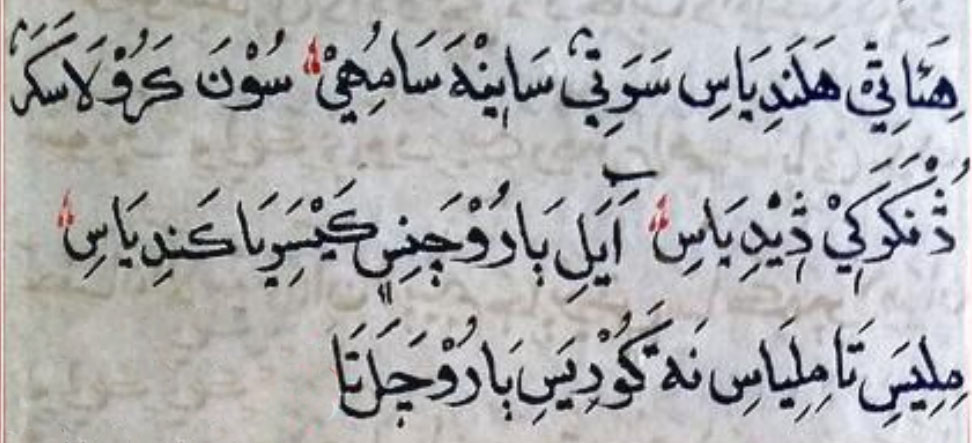 هِئَاتِيْ هَلَندِيَاسِ سَوَتِيْ سَاينْهَ سَامُهِيْ سُوْنَ كَرُوْ لَاسَكَرَ
ڎُنكَرَ كيْ ڎِيْندِيَاسِ آيَلِ ٻَارُوْچَنِسِ كَيْسِرِيَا كَندِيَاسِ
مِلِيَسِ تَا مِلِيَاسِ نَه تَ كُوْدِيَسِ ٻَارُوْچَلَ تَا